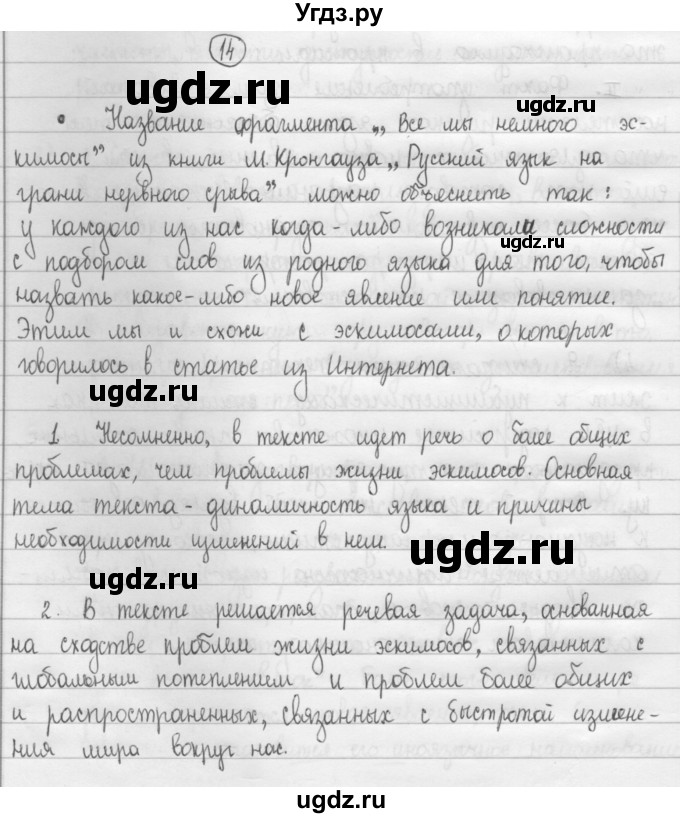 Угдз.ру
14
• Название фрагмента „Все мы немного эс-
кимосы” из книги М. Кронгауза „Русский язык на
грани нервного срыва” можно объяснить так:
у каждого из нас когда-либо возникали сложности
с подбором слов из родного языка для того, чтобы
назвать какое-либо новое явление или понятие.
Этим мы и схожи с эскимосами, о которых
говорилось в статье из Интернета.
1. Несомненно, в тексте идет речь о более общих
проблемах, чем проблемы жизни эскимосов. Основная
тема текста - динамичность языка и причины
необходимости изменений в нем.
2. В тексте решается речевая задача, основанная
на сходстве проблем жизни эскимосов, связанных с
глобальным потеплением и проблем более общих
и распространенных, связанных с быстротой измене-
ния мира вокруг нас.
ugdz.ru
ugdz.ru
ugdz.ru
ugdz.ru
ugdz.ru
ugdz.ru
ugdz.ru
ugdz.ru